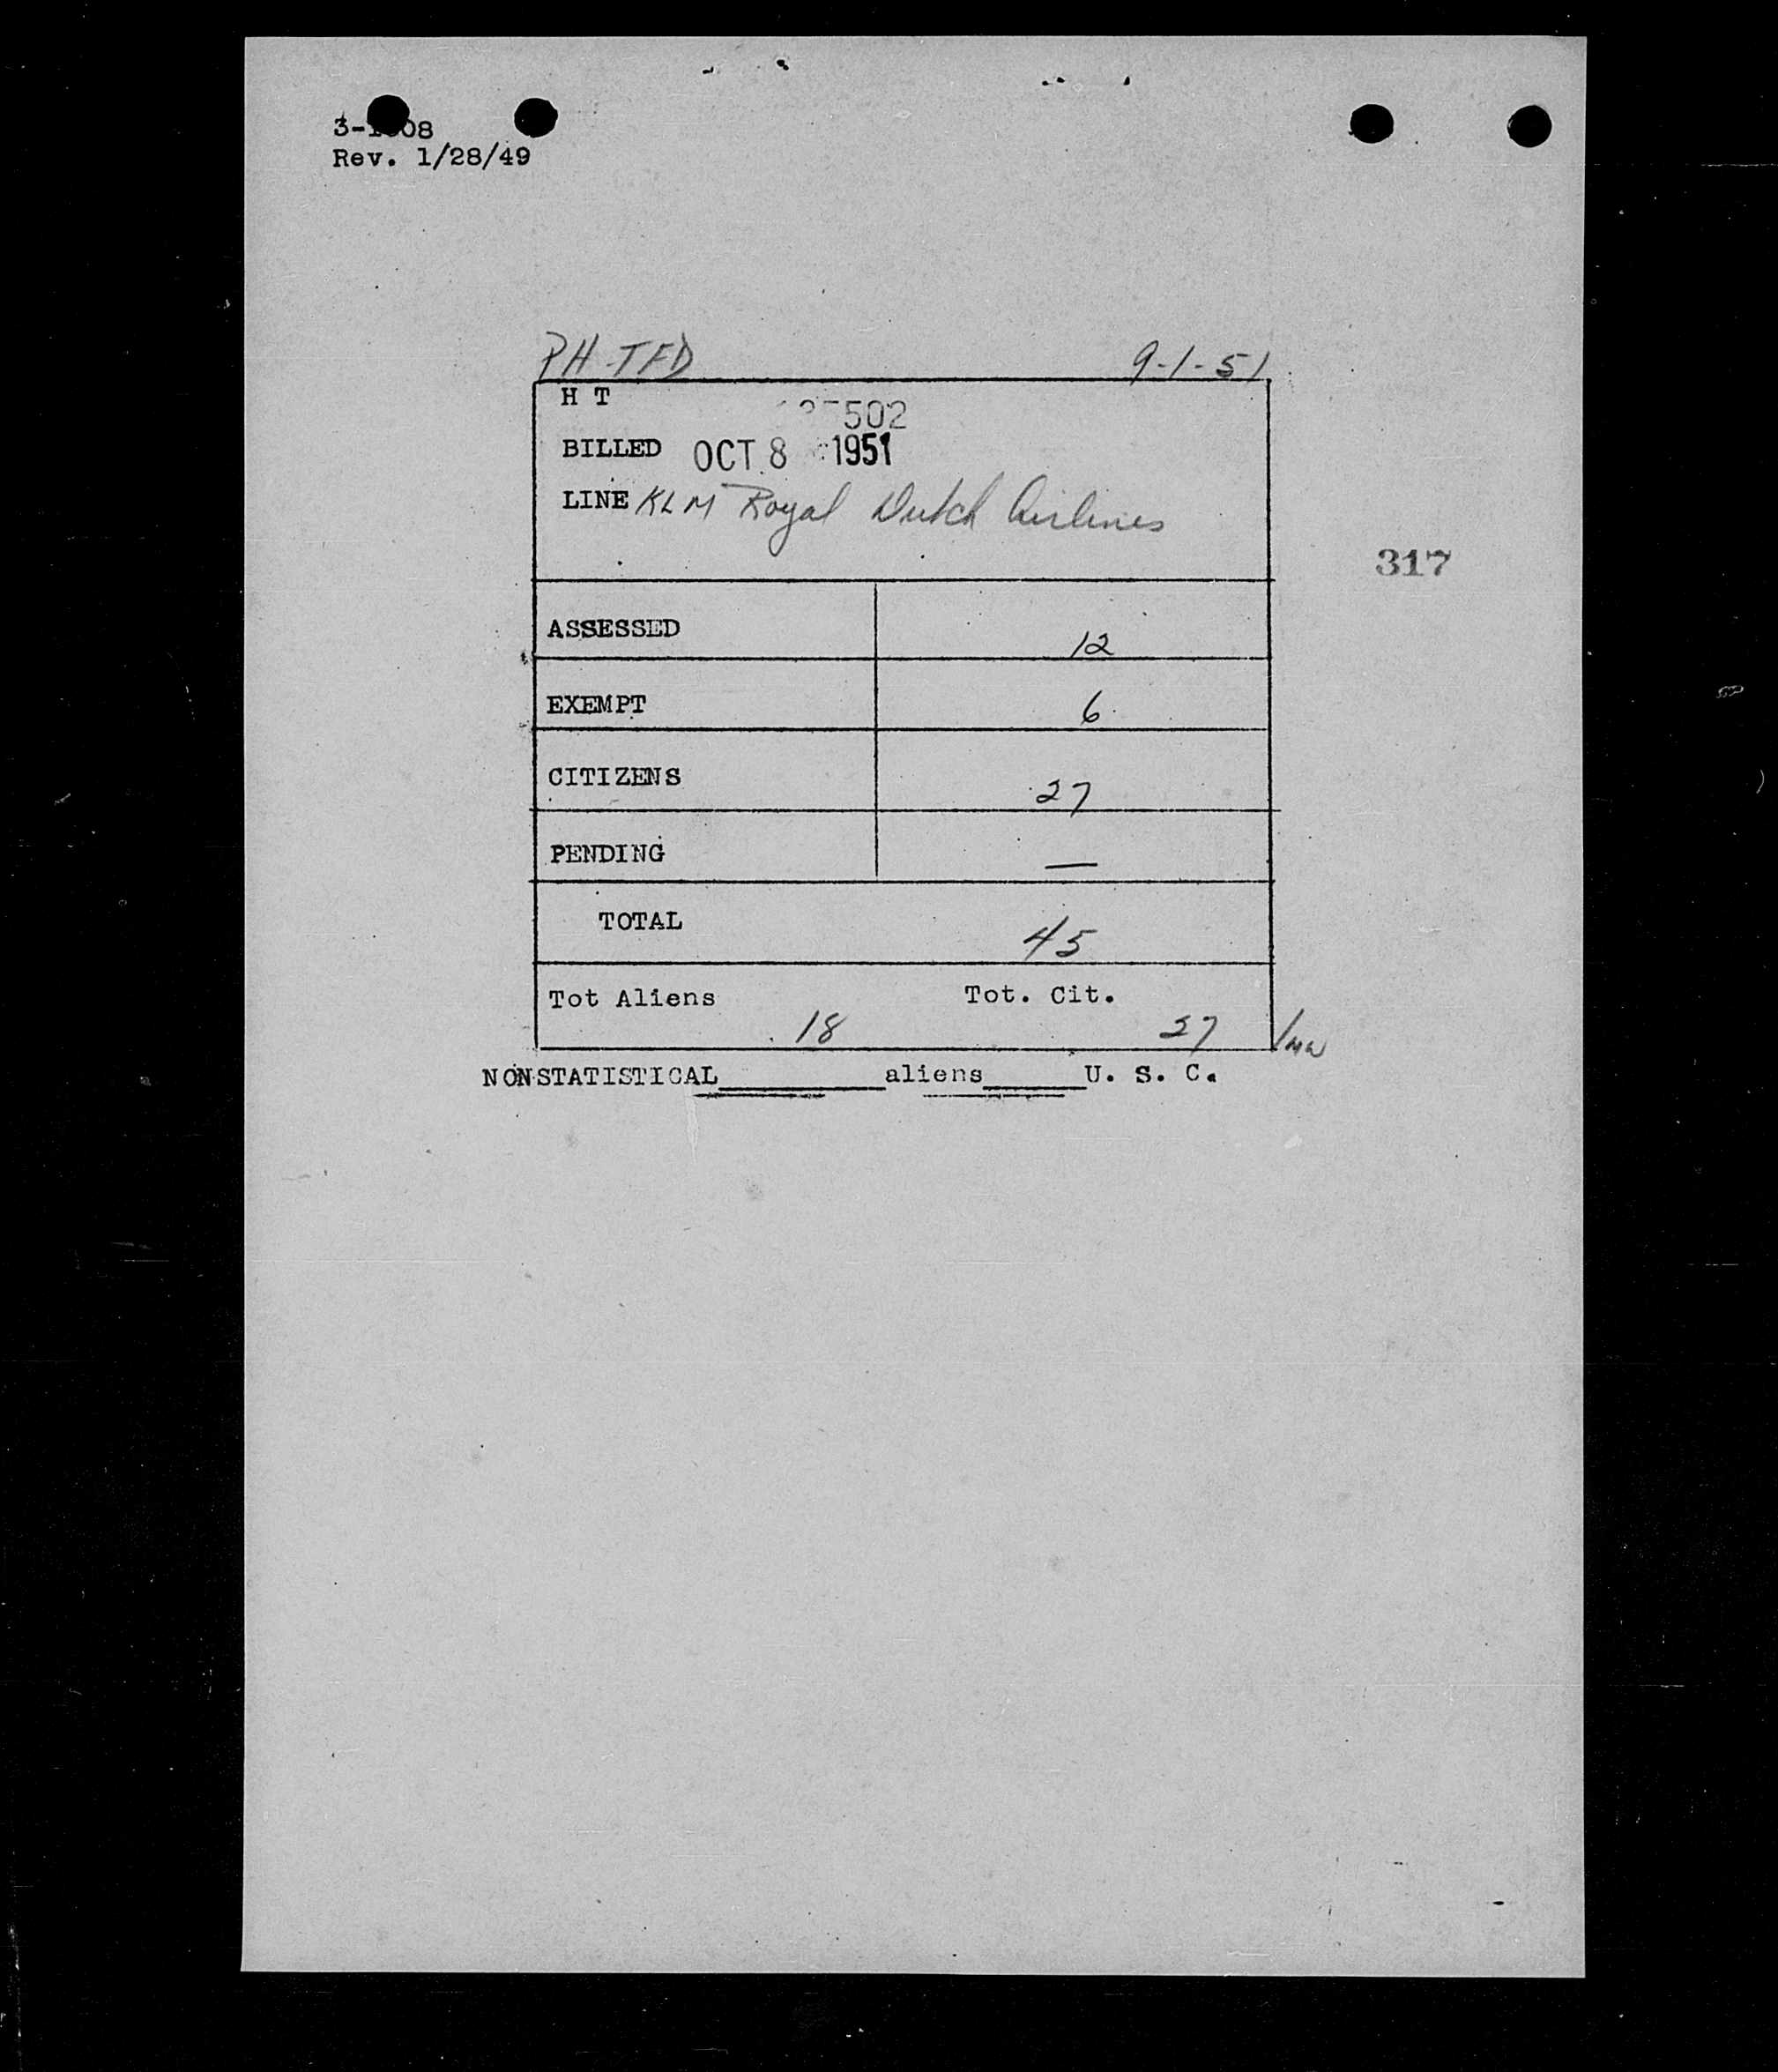 Rev. 1/28/49
PH-TFD 9-1-51
H T
502
BILLED OCT 8 1951
LINE KLM Royal Dutch Airlines
317
ASSESSED 12
EXEMPT 6
CITIZENS 27
PENDING —
TOTAL 45
Tot Aliens Tot. Cit.
18 27
NONSTATISTICAL________aliens_____U. S. C.